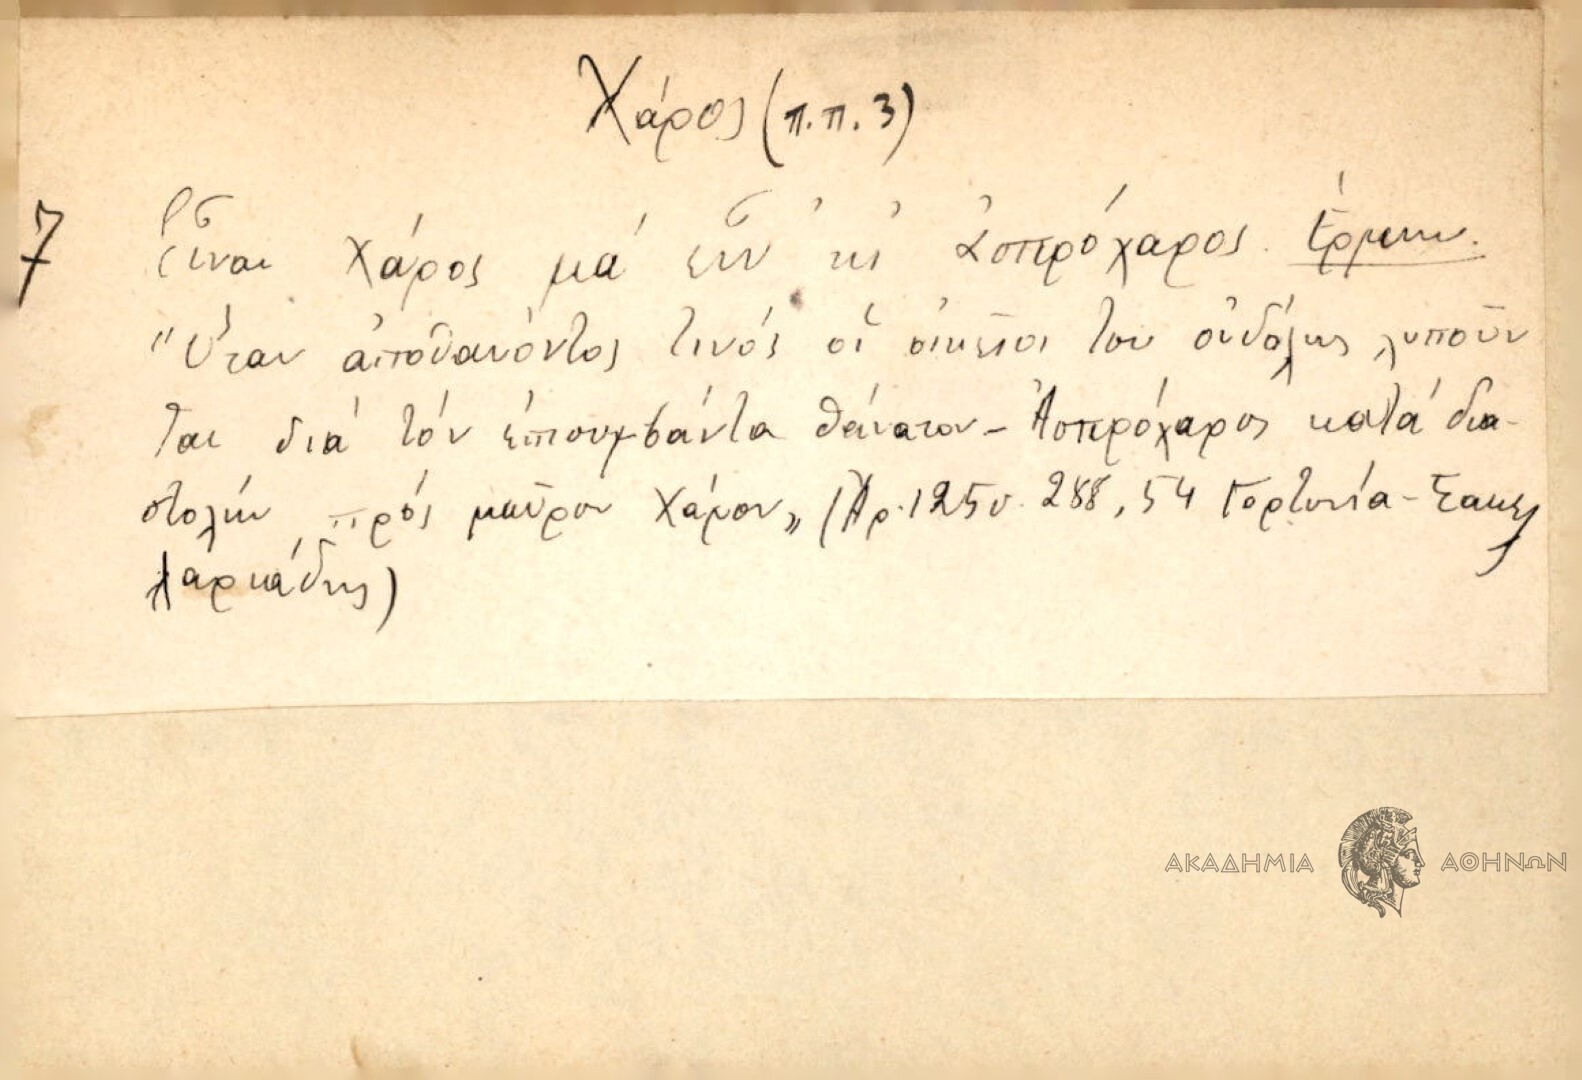 Χάρος (π.π. 3)
7 Εἶναι Χάρος μά εἶν' κι' ἀσπρόχαρος. Ἑρμην.
"Ὅταν ἀποθανόντος τινός οἱ οἰκεῖοι του οὐδόλως λυποῦν
ται διά τόν ἐπισυμβάντα θάνατον - Ἀσπρόχαρος κατά δια-
στολήν πρός μαῦρον Χάρον" (Ἀρ. 125 288, 54 Γορτυνία -
)
ΑΚΑΔΗΜΙΑ ΑΘΗΝΩΝ